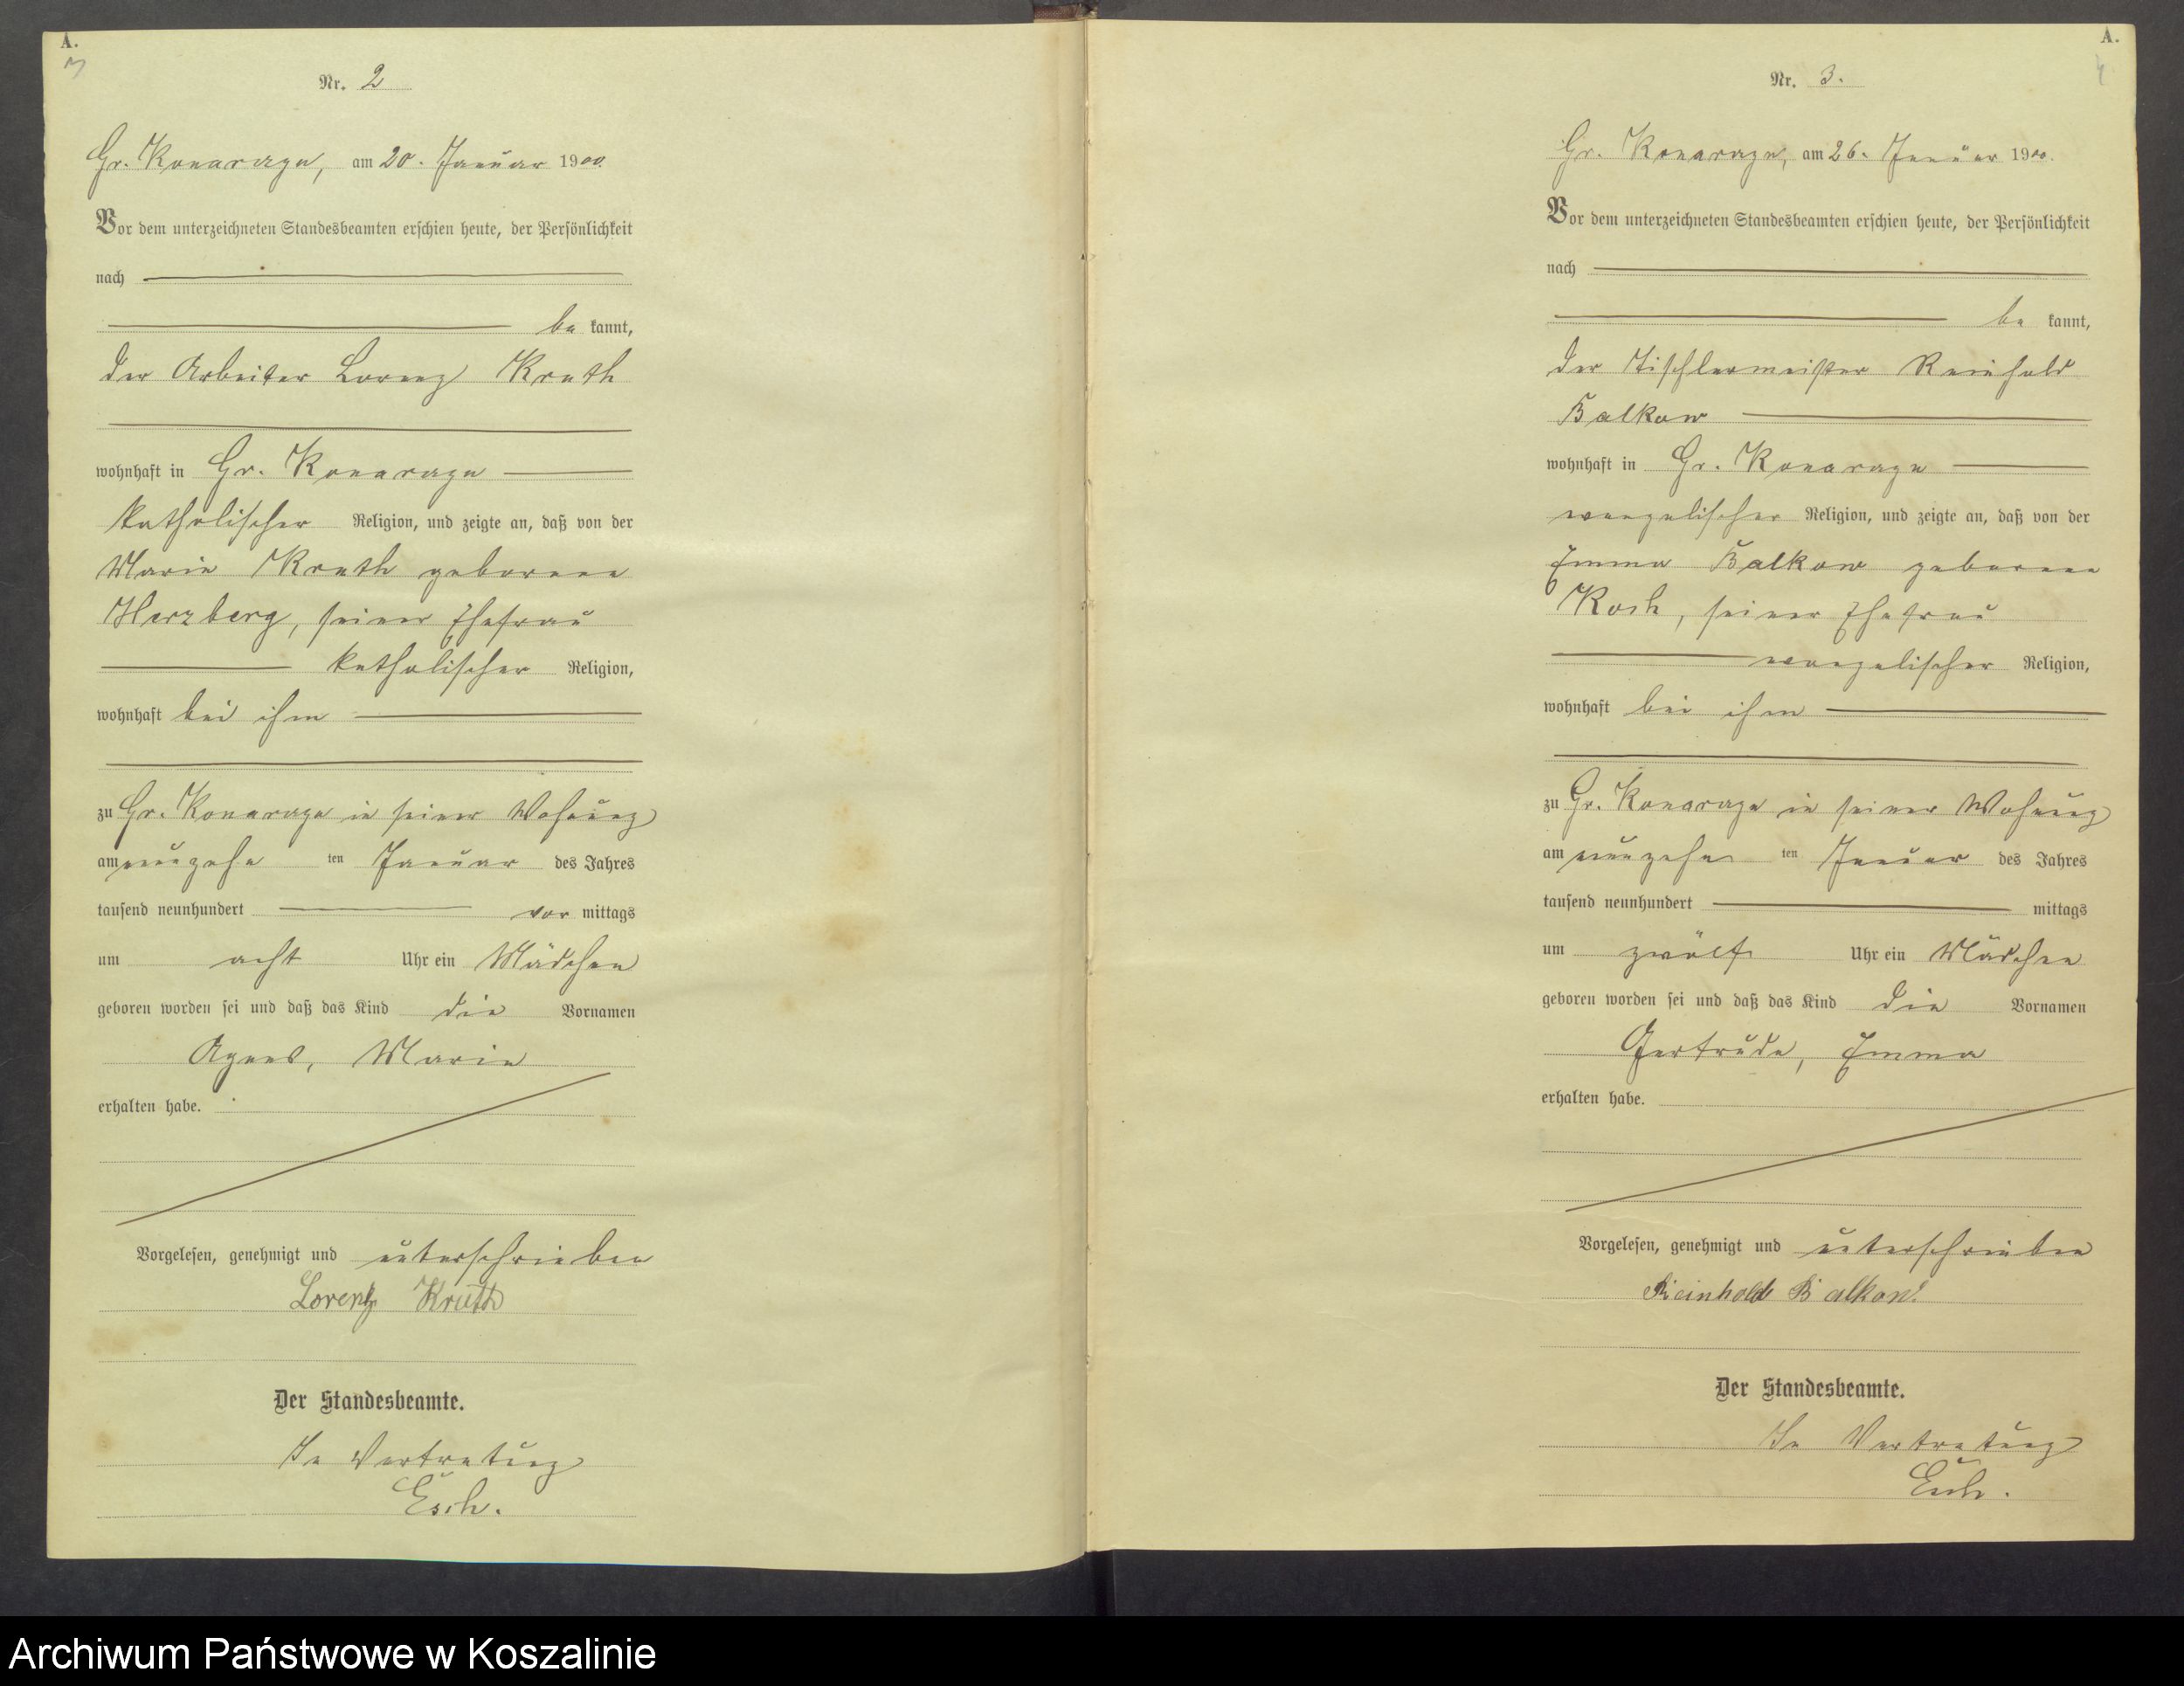 A.
3
Nr. 2
Gr. Konarczyn, am 20. Januar 1900.
Vor dem unterzeichneten Standesbeamten erschien heute, der Persönlichkeit
nach
be kannt,
der Arbeiter Lorenz Kruth
wohnhaft in Gr. Konarczyn
katholischer Religion, und zeigte an, daß von der
Marie Kruth geborene
Herzberg, seiner Ehefrau
katholischer Religion,
wohnhaft bei ihm
zu Gr. Konarczyn in seiner Wohnung
am neunzehn ten Januar des Jahres
tausend neunhundert vor mittags
um acht Uhr ein Mädchen
geboren worden sei und daß das Kind die Vornamen
Agnes, Marie
erhalten habe.
Vorgelesen, genehmigt und unterschrieben
Lorenz Kruth
Der Standesbeamte.
In Vertretung
Esch.
A.
4
Nr. 3.
Gr. Konarczyn, am 26. Januar 1900.
Vor dem unterzeichneten Standesbeamten erschien heute, der Persönlichkeit
nach
be kannt,
der Tischlermeister Reinhold
Balkow
wohnhaft in Gr. Konarczyn
evangelischer Religion, und zeigte an, daß von der
Emma Balkow geborene
Koch, seiner Ehefrau
evangelischer Religion,
wohnhaft bei ihm
zu Gr. Konarczyn in seiner Wohnung
am neunzehn ten Januar des Jahres
tausend neunhundert mittags
um zwölf Uhr ein Mädchen
geboren worden sei und daß das Kind die Vornamen
Gertrude, Emma
erhalten habe.
Vorgelesen, genehmigt und unterschrieben
Reinhold Balkow.
Der Standesbeamte.
In Vertretung
Esch.
Archiwum Państwowe w Koszalinie